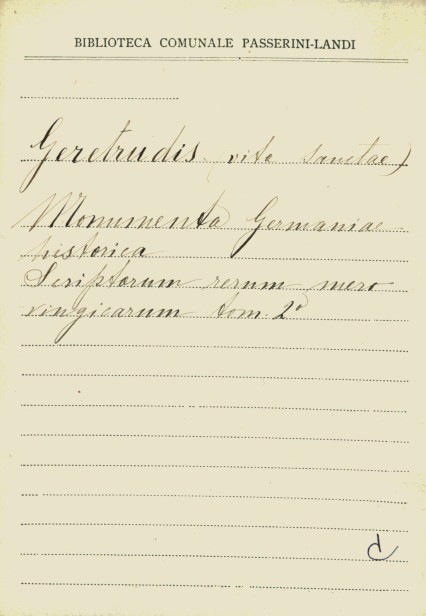 BIBLIOTECA COMUNALE PASSERINI-LANDI
Geretrudis (vita sanctae)
Monumenta Germaniae
historica
Scriptorum rerum mero
vingicarum tom. 2º
d